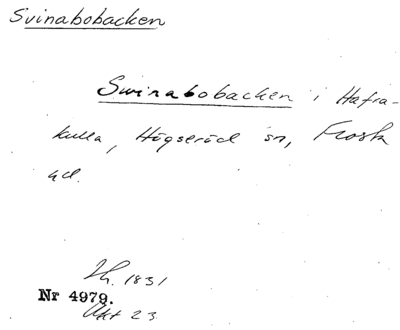 Svinabobacken
Swinabobacken i Hafra-
kulla, Högseröd sn, Frosta
hd.
Lh. 1831
Nr 4979.
Akt 23